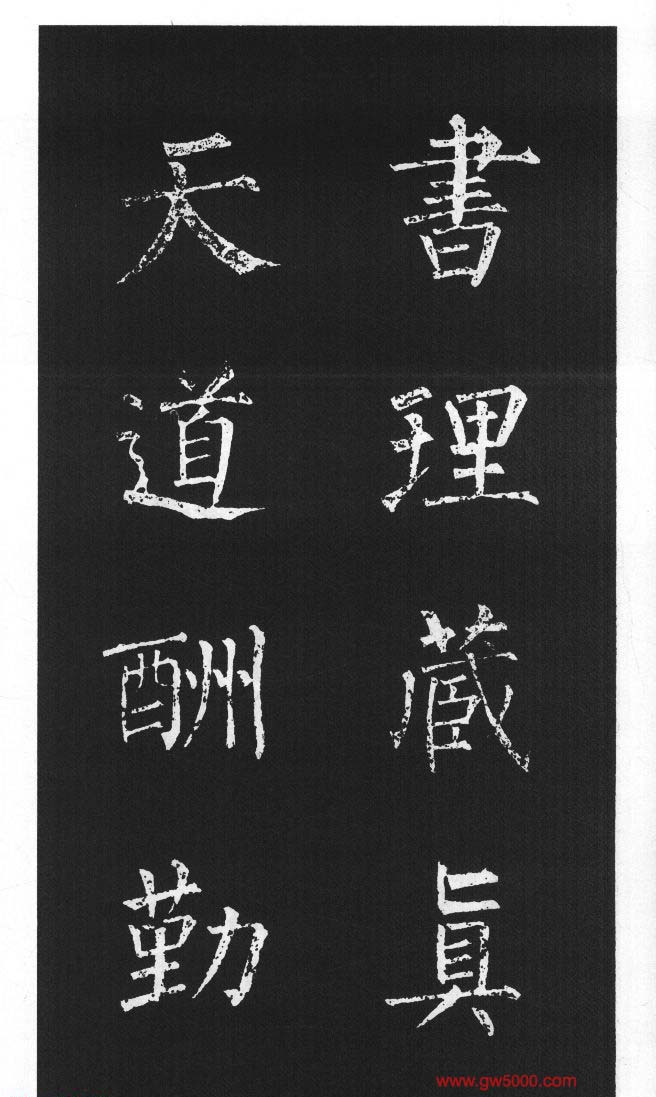 書理蔵眞
天道酬勤
www.gw5000.com